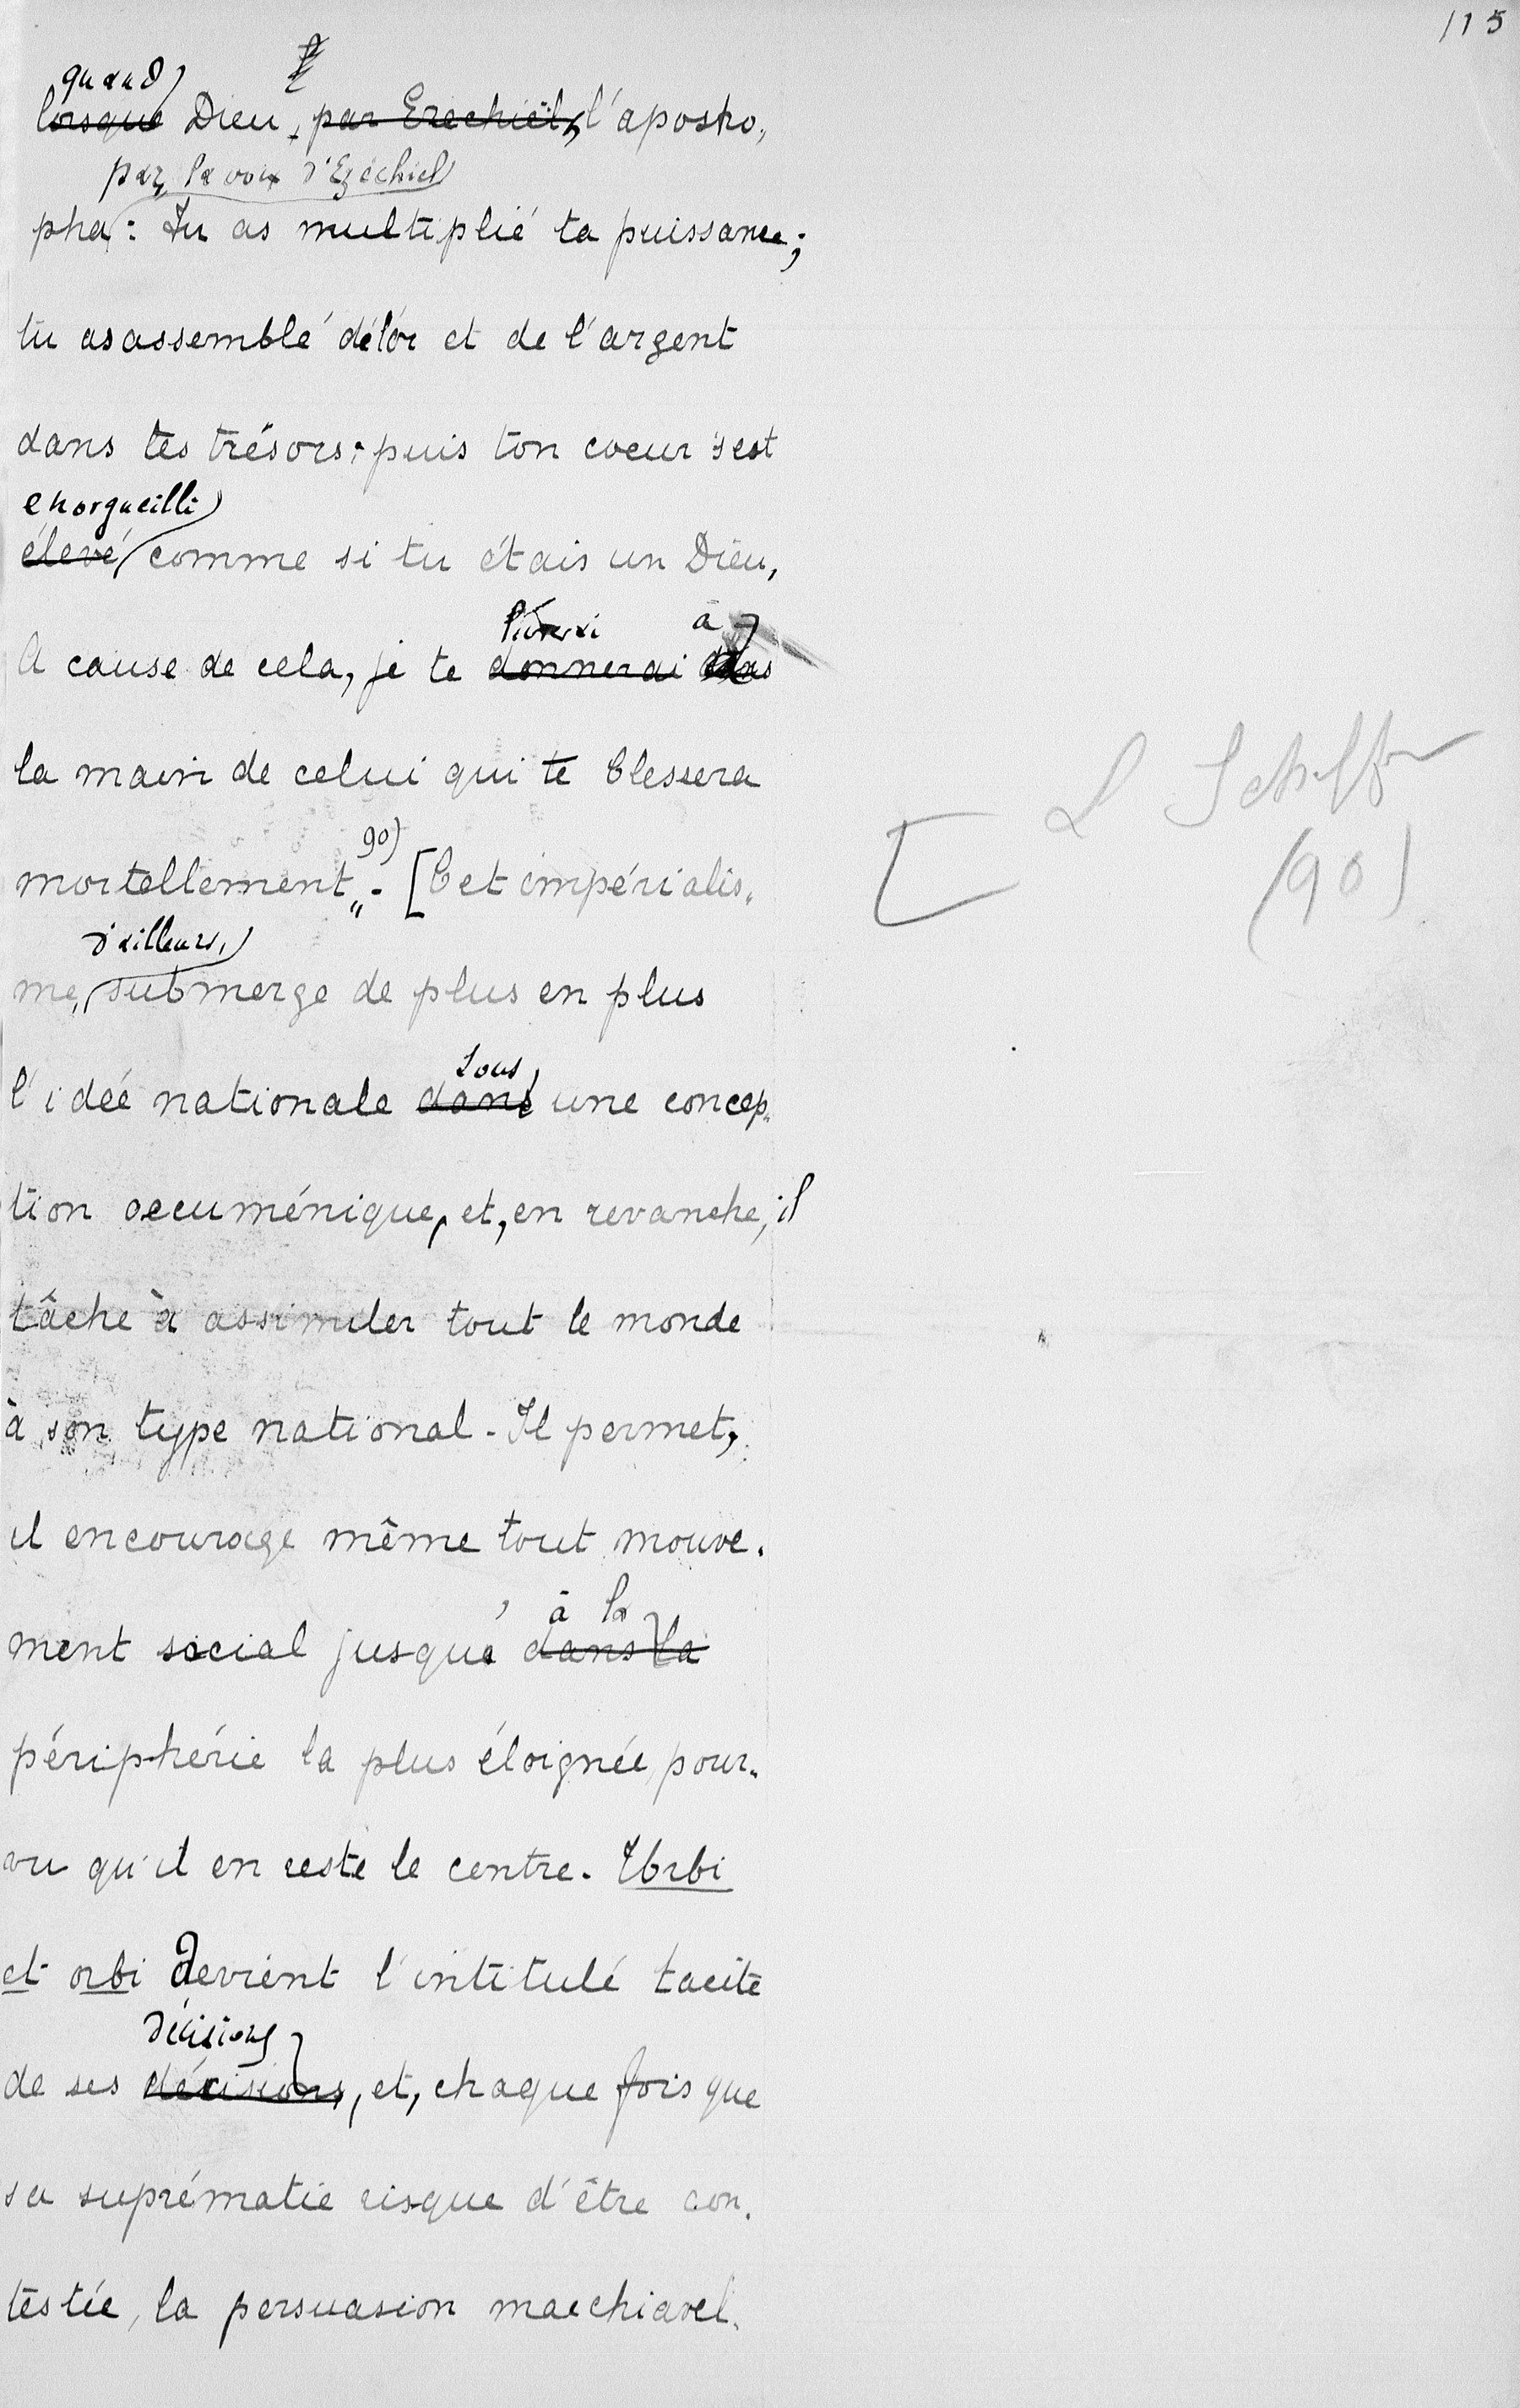 115
quand
lorsque Dieu, par Ezechiël, l'apostro„
par la voix d'Ezéchiel
pha: Tu as multiplié ta puissance;
tu as assemblé de l'or et de l'argent
dans tes trésors; puis ton coeur s'est
enorgueilli
élevé comme si tu étais un Dieu,
livrerai à
A cause de cela, je te donnerai dans
la main de celui qui te blessera
90)
mortellement„. [Cet impérialis„
d'ailleurs,
me, submerge de plus en plus
sous
l'idée nationale dans une concep„
tion oecuménique, et, en revanche, il
tâche à assimiler tout le monde
à son type national. Il permet,
il encourage même tout mouve.
à la
ment social jusque dans la
périphérie la plus éloignée pour„
vu qu'il en reste le centre. Urbi
et orbi devient l'intitulé tacite
décisions
de ses décisions, et, chaque fois que
sa suprématie risque d'être con.
testée, la persuasion macchiavel.
[
(90)